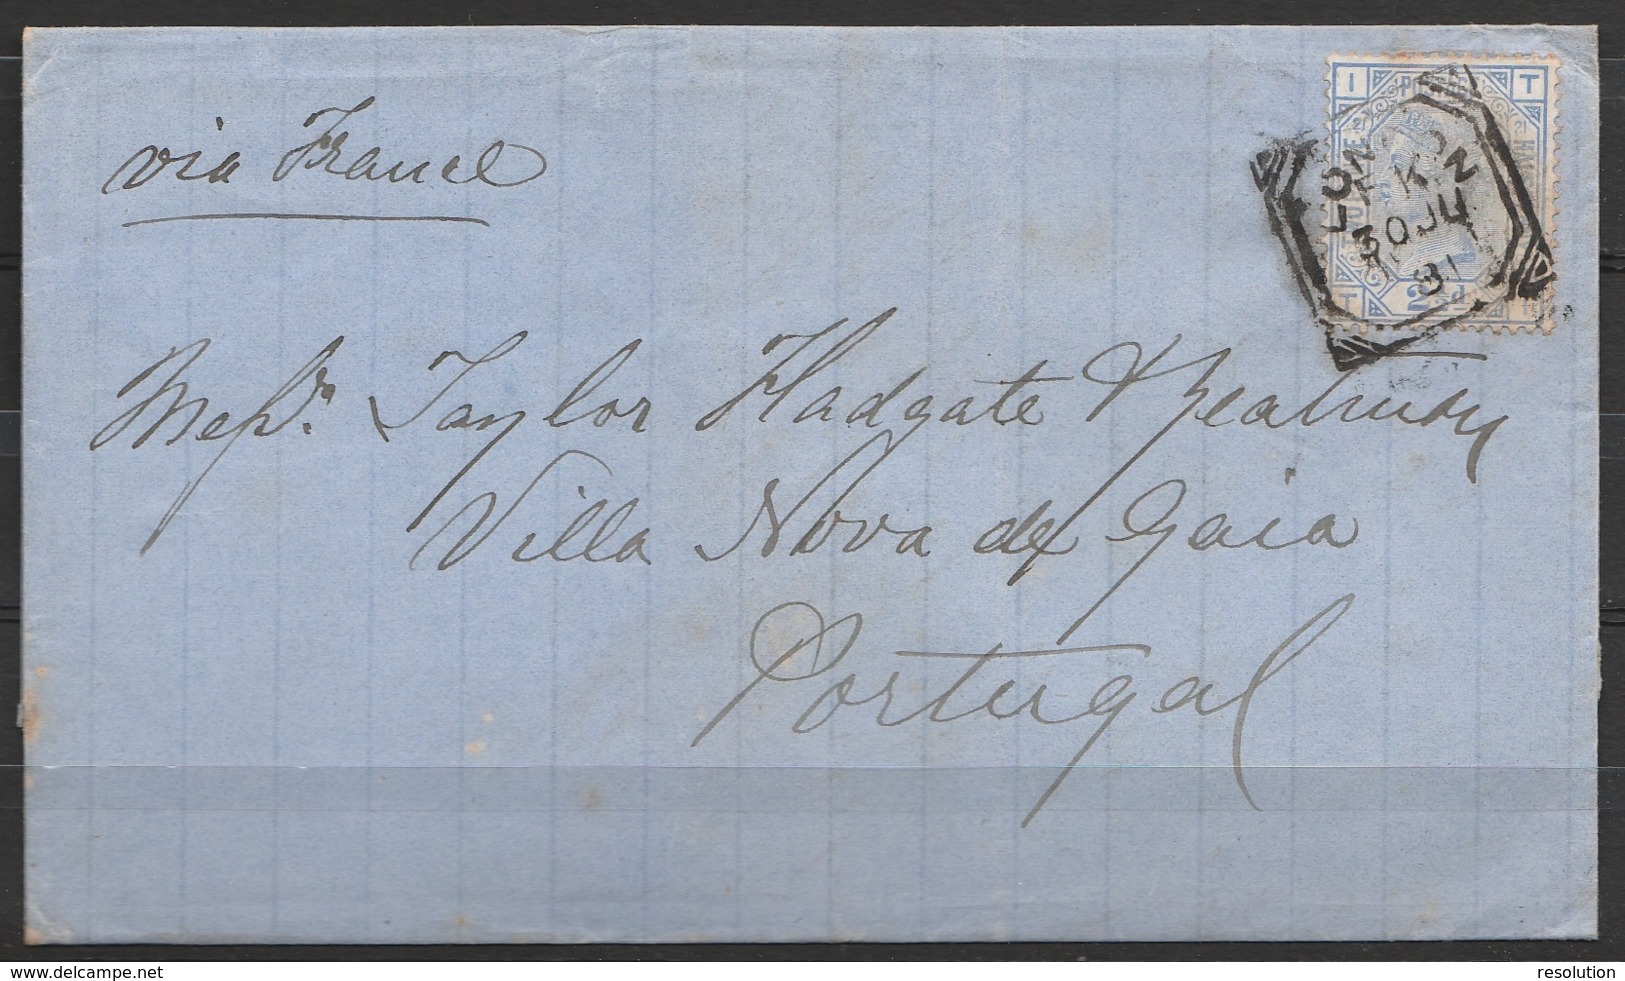 via France
I T
POSTAGE
21 21
LONDON
K
30 JU
81
T 2½d
Messrs. Taylor Fladgate & Yeatman
Villa Nova de Gaia
Portugal
www.delcampe.net
resolution